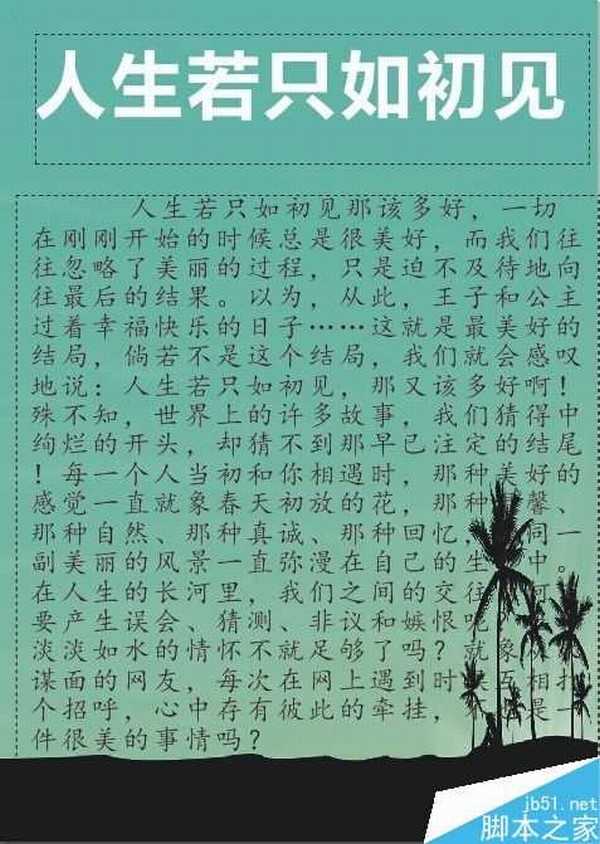 人生若只如初见
人生若只如初见那该多好，一切
在刚刚开始的时候总是很美好，而我们往
往忽略了美丽的过程，只是迫不及待地向
往最后的结果。以为，从此，王子和公主
过着幸福快乐的日子……这就是最美好的
结局，倘若不是这个结局，我们就会感叹
地说：人生若只如初见，那又该多好啊！
殊不知，世界上的许多故事，我们猜得中
绚烂的开头，却猜不到那早已注定的结尾
！每一个人当初和你相遇时，那种美好的
感觉一直就象春天初放的花，那种馨、
那种自然、那种真诚、那种回忆，同一
副美丽的风景一直弥漫在自己的生中。
在人生的长河里，我们之间的交往何
要产生误会、猜测、非议和嫉恨呢
淡淡如水的情怀不就足够了吗？就象
谋面的网友，每次在网上遇到时互相打
个招呼，心中存有彼此的牵挂，是一
件很美的事情吗？
jb51.net
脚本之家